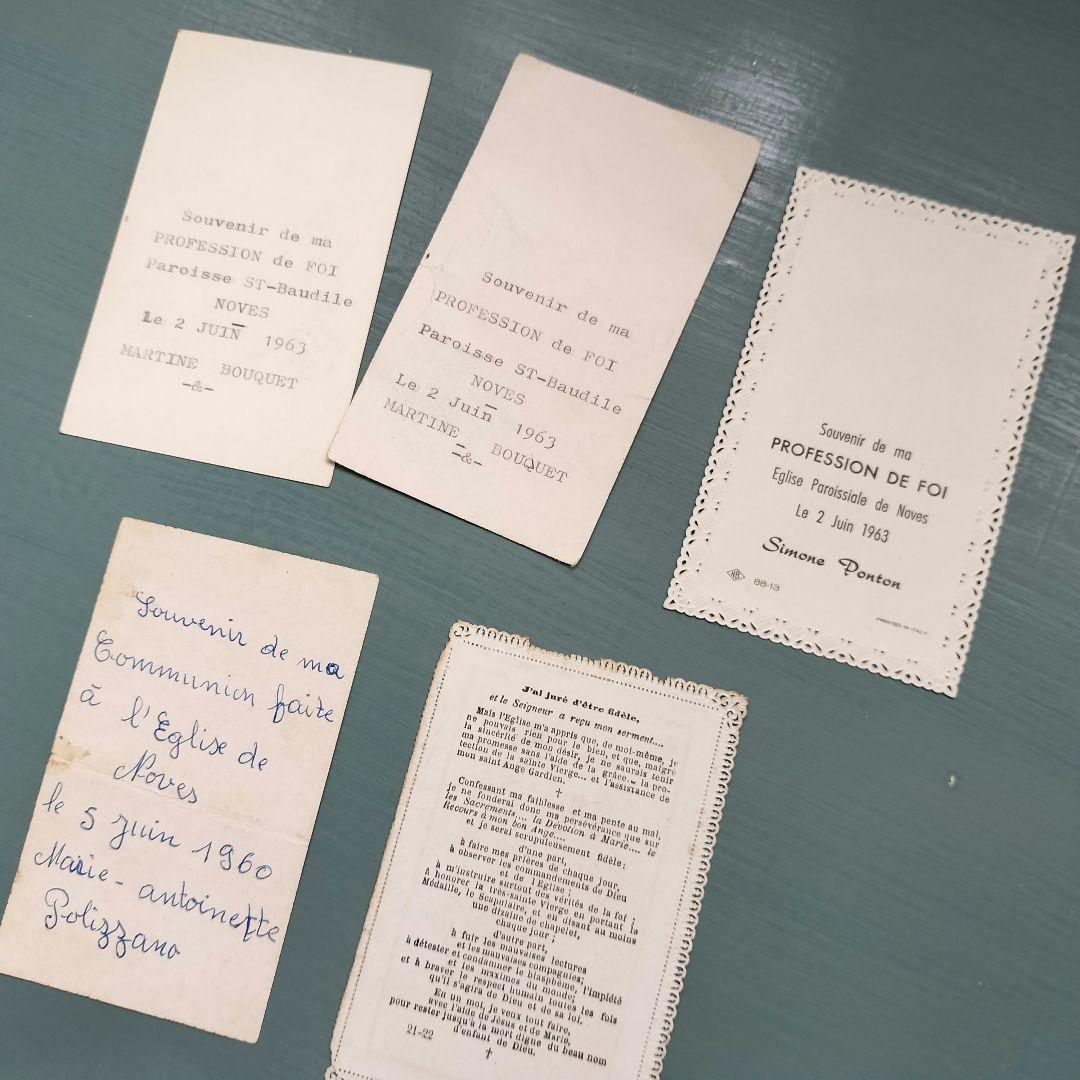 Souvenir de ma
PROFESSION de FOI
Paroisse ST-Baudile
NOVES
Le 2 JUIN 1963
MARTINE BOUQUET
-&-
Souvenir de ma
PROFESSION de FOI
Paroisse ST-Baudile
NOVES
Le 2 Juin 1963
MARTINE BOUQUET
-&-
Souvenir de ma
PROFESSION DE FOI
Eglise Paroissiale de Noves
Le 2 Juin 1963
Simone Ponton
88-13
PRINTED IN ITALY
Souvenir de ma
Communion faite
à l'Eglise de
Noves
le 5 juin 1960
Marie-antoinette
Polizzano
J'ai juré d'être fidèle,
et le Seigneur a reçu mon serment....
Mais l'Eglise m'a appris que, de moi-même, je
ne pouvais rien pour le bien, et que, malgré
la sincérité de mon désir, je ne saurais tenir
ma promesse sans l'aide de la grâce.. la pro-
tection de la sainte Vierge... et l'assistance de
mon saint Ange Gardien.
†
Confessant ma faiblesse et ma pente au mal,
je ne fonderai donc ma persévérance que sur
les Sacrements.... la Dévotion à Marie.... le
Recours à mon bon Ange....
et je serai scrupuleusement fidèle:
d'une part,
à faire mes prières de chaque jour,
à observer les commandements de Dieu
et de l'Eglise;
à m'instruire surtout des vérités de la foi;
A honorer la très-sainte Vierge en portant la
Médaille, le Scapulaire, et en disant au moins
une dizaine de chapelet,
chaque jour;
d'autre part,
à fuir les mauvaises lectures
et les mauvaises compagnies;
à détester et condamner le blasphème, l'impiété
et les maximes du monde;
et à braver le respect humain toutes les fois
qu'il s'agira de Dieu et de sa loi.
En un mot, je veux tout faire,
avec l'aide de Jésus et de Marie,
pour rester jusqu'à la mort digne du beau nom
d'enfant de Dieu.
21-22
†